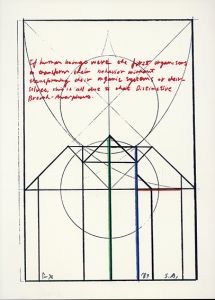 If human beings were the first organisms
to transform their behavior without
transforming their organic systems or their
this is all due to that Distinctive
Break-
'89 S.A.